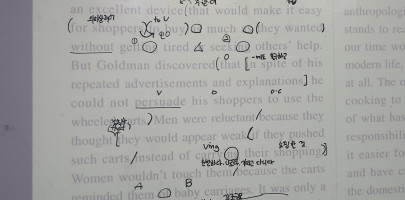 an excellent device that would make it easy
for shoppers to buy as much as they wanted
without getting tired or seeking others' help.
But Goldman discovered that in spite of his
repeated advertisements and explanations, he
could not persuade his shoppers to use the
wheeled carts. Men were reluctant because they
thought they would appear weak if they pushed
such carts instead of carrying their shopping.
Women wouldn't touch them because the carts
reminded them of baby carriages. It was only a
anthropologi
stands to rea
our time wo
modern life,
at all. The o
cooking to
of what has
responsibili
it easier fo
and have c
the domesti
to V
V
O
O·C
Ving
A
B